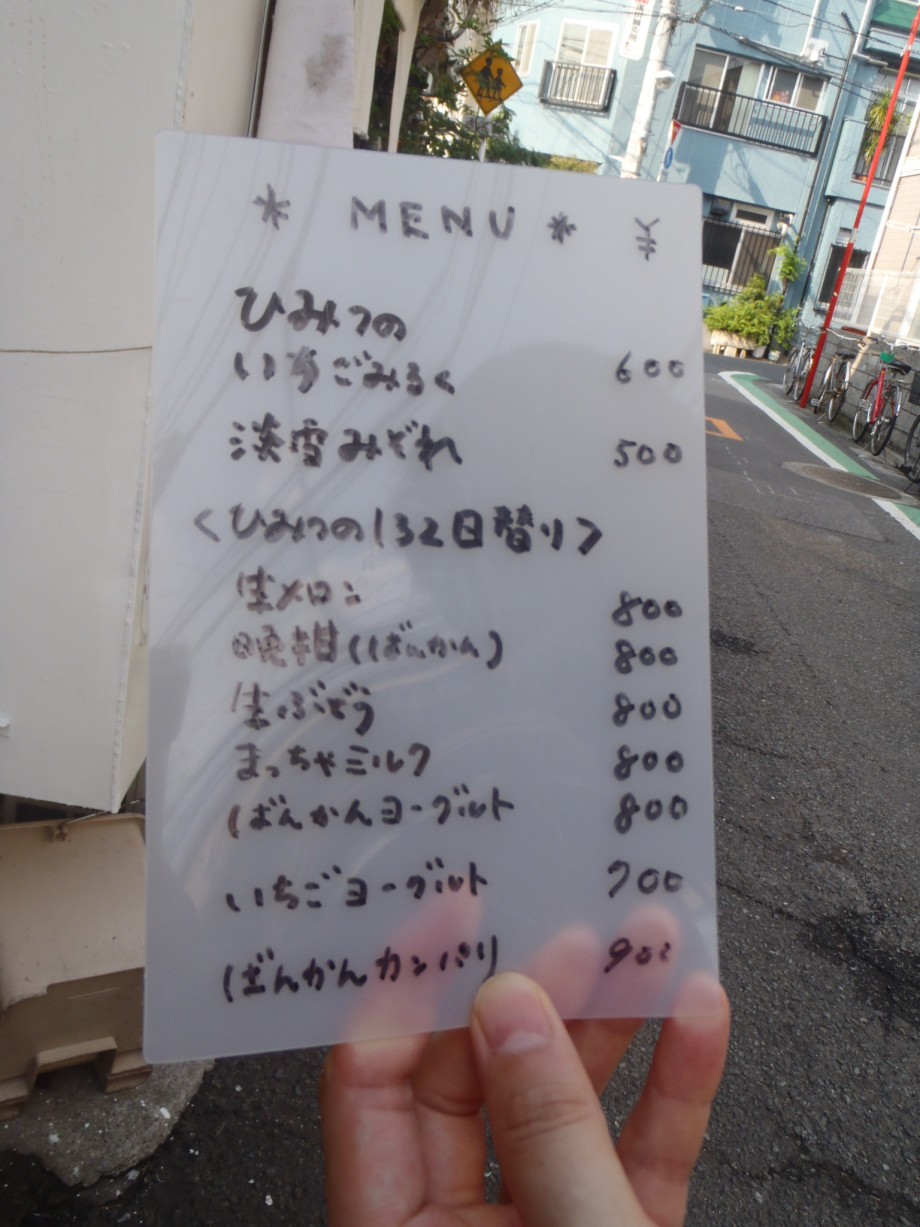 * MENU * ¥
ひみつの
いちごみるく 600
淡雪みぞれ 500
<ひみつの132日替り>
生メロン 800
晩柑(ばんかん) 800
生ぶどう 800
まっちゃミルク 800
ばんかんヨーグルト 800
いちごヨーグルト 700
ばんかんカンパリ 900